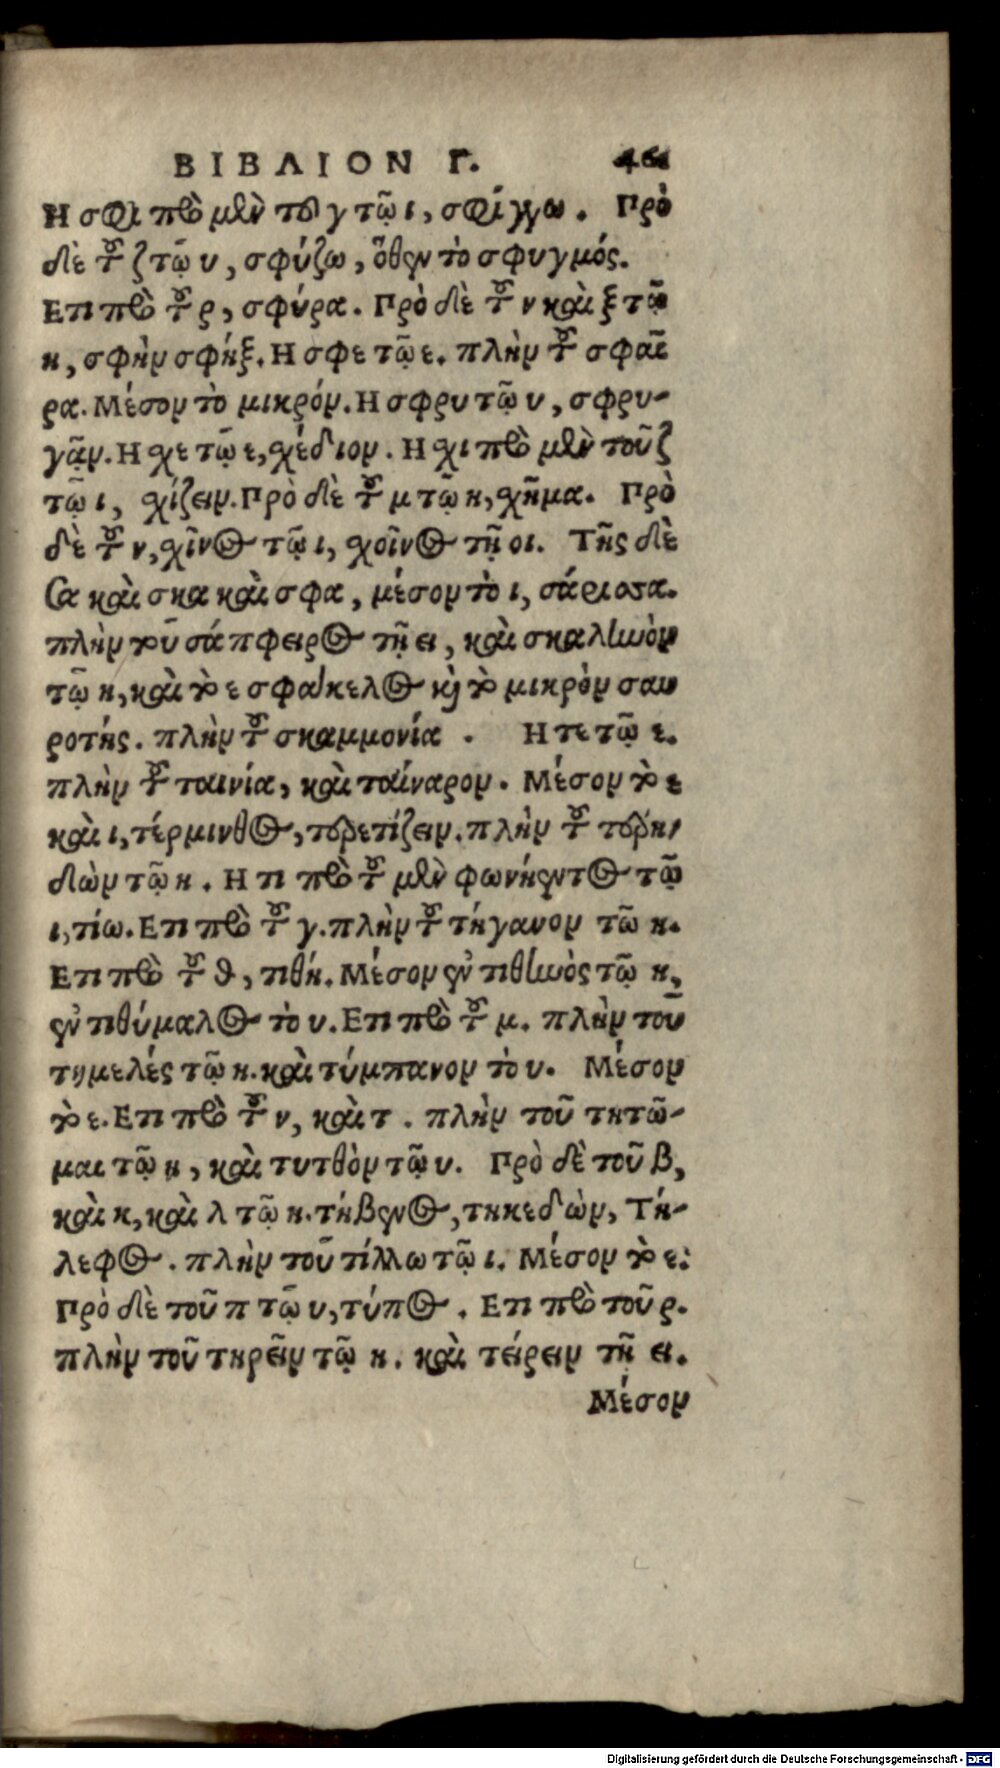 ΒΙΒΛΙΟΝ Γ. 461
Η σφι πρὸ μὲν τοῦ γ τῷ ι, σφίγγω. Πρὸ
δὲ τοῦ ζ τῷ υ, σφύζω, ὅθεν τὸ σφυγμός.
Επι πρὸ τοῦ ρ, σφύρα. Πρὸ δὲ τοῦ ν καὶ ξ τῷ
η, σφὴν σφήξ. Η σφε τῷ ε. πλὴν τοῦ σφαῖ
ρα. Μέσον τὸ μικρόν. Η σφρυ τῷ υ, σφρυ-
γᾷν. Η χε τῷ ε, χέδιον. Η χι πρὸ μὲν τοῦ ζ
τῷ ι, χίζειν. Πρὸ δὲ τοῦ μ τῷ η, χῆμα. Πρὸ
δὲ τοῦ ν, χῖνος τῷ ι, χοῖνος τῇ οι. Τῆς δὲ
Σα καὶ σκα καὶ σφα, μέσον τὸ ι, σάρισσα.
πλὴν τοῦ σάπφειρος τῇ ει, καὶ σκαληνὸν
τῷ η, καὶ τὸ ε σφάκελος καὶ τὸ μικρὸν σαυ
ροτής. πλὴν τοῦ σκαμμονία . Η τε τῷ ε.
πλὴν τοῦ ταινία, καὶ ταίναρον. Μέσον τὸ ε
καὶ ι, τέρμινθος, τερετίζειν. πλὴν τοῦ τερη-
δὼν τῷ η. Η τι πρὸ τοῦ μὲν φωνήεντος τῷ
ι, τίω. Επι πρὸ τοῦ γ. πλὴν τοῦ τήγανον τῷ η.
Επι πρὸ τοῦ θ, τιθή. Μέσον ἐν τιθηνὸς τῷ η,
ἐν τιθύμαλος τὸ υ. Επι πρὸ τοῦ μ. πλὴν τοῦ
τημελές τῷ η. καὶ τύμπανον τὸ υ. Μέσον
τὸ ε. Επι πρὸ τοῦ ν, καὶ τ . πλὴν τοῦ τητῶ-
μαι τῷ η, καὶ τυτθὸν τῷ υ. Πρὸ δὲ τοῦ β,
καὶ κ, καὶ λ τῷ η. τήβενος, τηκεδὼν, Τή-
λεφος . πλὴν τοῦ τίλλω τῷ ι. Μέσον τὸ ε.
Πρὸ δὲ τοῦ π τῷ υ, τύπος . Επι πρὸ τοῦ ρ.
πλὴν τοῦ τηρεῖν τῷ η. καὶ τείρειν τῇ ει.
Μέσον
Digitalisierung gefördert durch die Deutsche Forschungsgemeinschaft - DFG